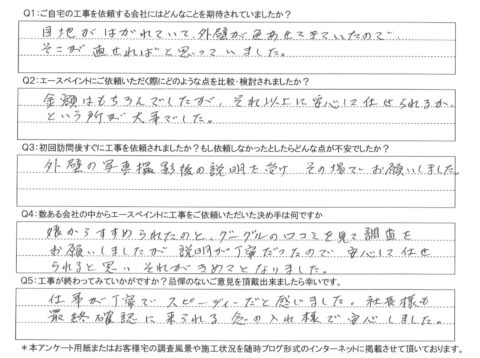 Q1：ご自宅の工事を依頼する会社にはどんなことを期待されていましたか？
目地がはがれていて、外壁が色あせてきていたので、
そこが直せればと思っていました。
Q2：エースペイントにご依頼いただく際にどのような点を比較・検討されましたか？
金額はもちろんでしたが、それ以上に安心して任せられるか、
という所が大事でした。
Q3：初回訪問後すぐに工事を依頼されましたか？もし依頼しなかったとしたらどんな点が不安でしたか？
外壁の写真撮影後の説明を受け その場でお願いしました。
Q4：数ある会社の中からエースペイントに工事をご依頼いただいた決め手は何ですか
娘からすすめられたのと、グーグルの口コミを見て調査を
お願いしましたが 説明が丁寧だったので 安心して任せ
られると思い それがきめてとなりました。
Q5：工事が終わってみていかがですか？忌憚のないご意見を頂戴出来ましたら幸いです。
仕事が丁寧で スピーディーだと感じました。社長様も
最終確認に来られる 念の入れ様で安心しました。
＊本アンケート用紙またはお客様宅の調査風景や施工状況を随時ブログ形式のインターネットに掲載させて頂いております。